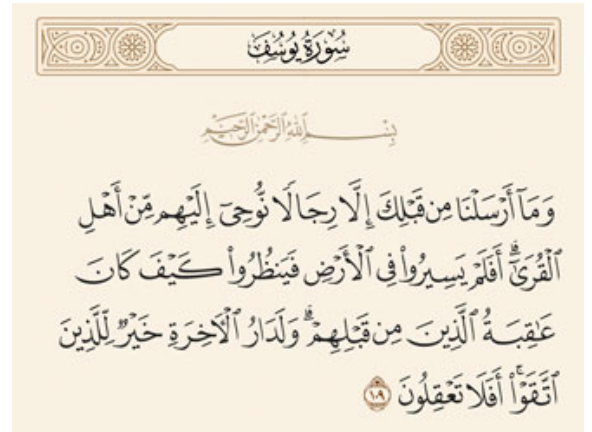 سُورَةُ يُوسُفَ
بِسْمِ ٱللَّهِ ٱلرَّحْمَٰنِ ٱلرَّحِيمِ
وَمَآ أَرْسَلْنَا مِن قَبْلِكَ إِلَّا رِجَالًا نُّوحِىٓ إِلَيْهِم مِّنْ أَهْلِ
ٱلْقُرَىٰٓ ۗ أَفَلَمْ يَسِيرُوا۟ فِى ٱلْأَرْضِ فَيَنظُرُوا۟ كَيْفَ كَانَ
عَٰقِبَةُ ٱلَّذِينَ مِن قَبْلِهِمْ ۗ وَلَدَارُ ٱلْءَاخِرَةِ خَيْرٌ لِّلَّذِينَ
ٱتَّقَوْا۟ ۗ أَفَلَا تَعْقِلُونَ ١٠٩